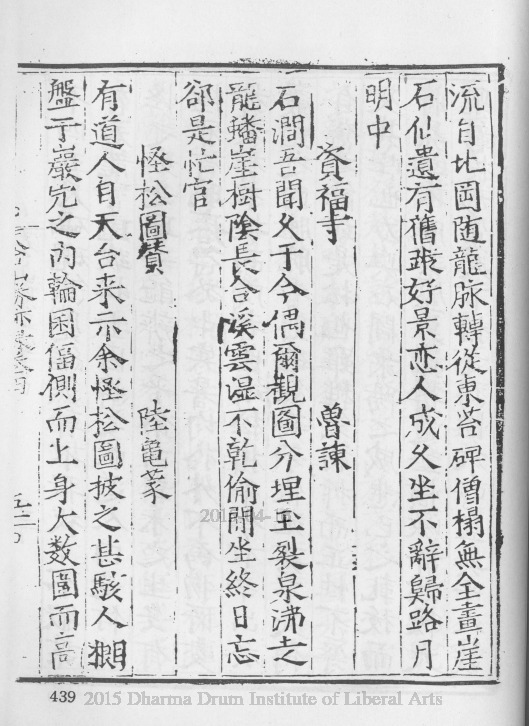 流自北岡随龍脉轉從東荅碑僧榻無全畫崖
石仙遺有舊蹤好景恋人成久坐不辭歸路月
明中
資福寺 魯諫
石澗吾聞久于今偶爾觀圖分埋土裂泉沸走
龍蟠崖樹陰長合溪雲湿不乾偷閒坐終日忘
郤是忙官
怪松圖贊 陸龜蒙
有道人自天台来示余怪松圖披之甚駭人
盤于巖穴之内輪囷偪側而上身大数圍而高
439 2015 Dharma Drum Institute of Liberal Arts